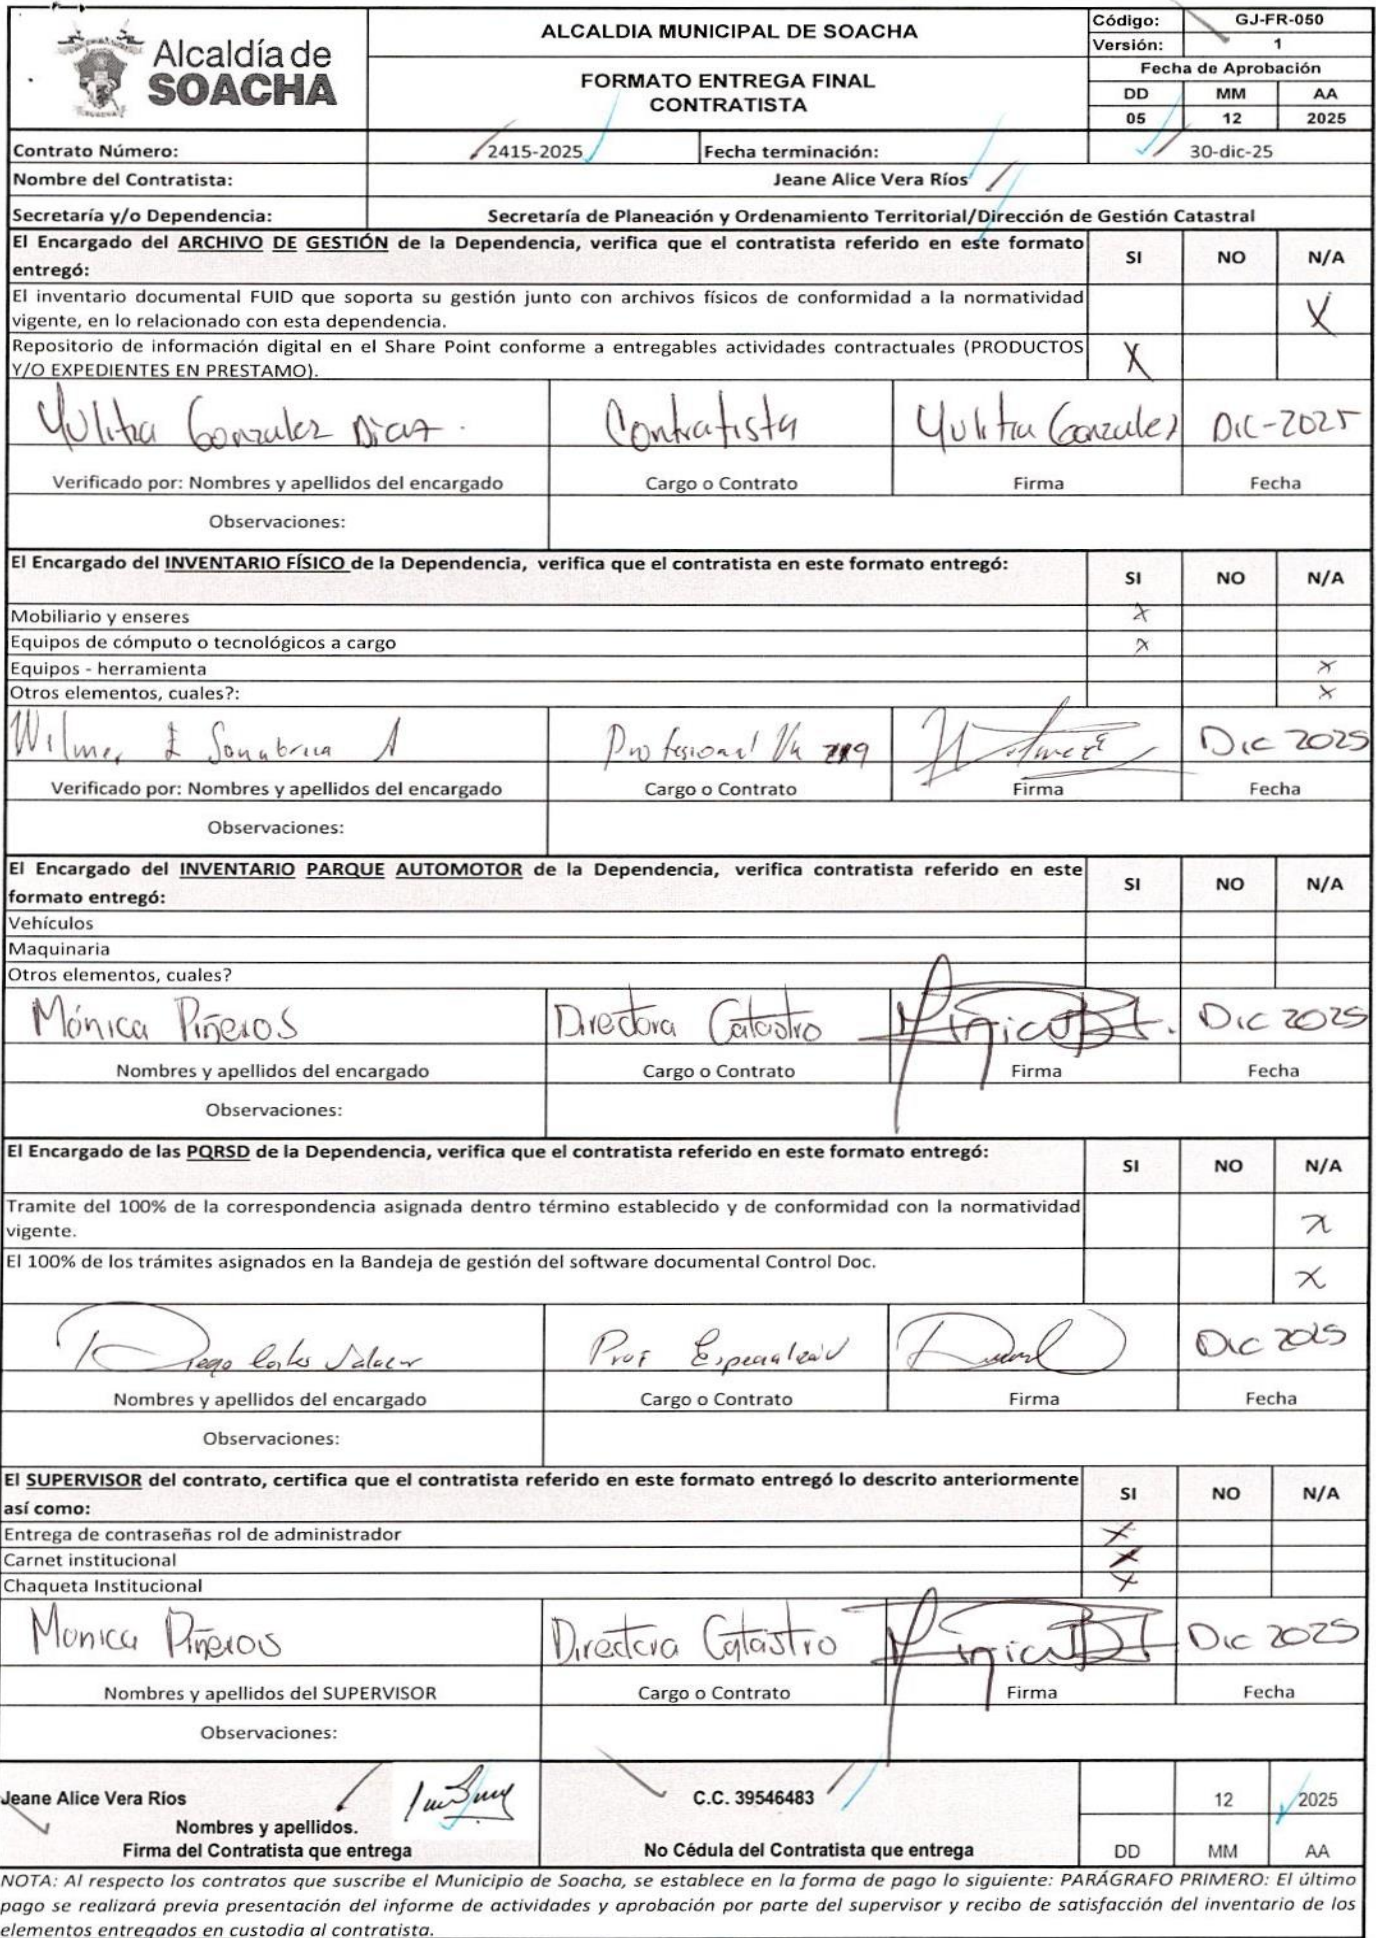 Alcaldía de
SOACHA
ALCALDIA MUNICIPAL DE SOACHA
FORMATO ENTREGA FINAL
CONTRATISTA
Código: GJ-FR-050
Versión: 1
Fecha de Aprobación
DD MM AA
05 12 2025
Contrato Número: 2415-2025 Fecha terminación: 30-dic-25
Nombre del Contratista: Jeane Alice Vera Ríos
Secretaría y/o Dependencia: Secretaría de Planeación y Ordenamiento Territorial/Dirección de Gestión Catastral
El Encargado del ARCHIVO DE GESTIÓN de la Dependencia, verifica que el contratista referido en este formato
entregó:
SI NO N/A
El inventario documental FUID que soporta su gestión junto con archivos físicos de conformidad a la normatividad
vigente, en lo relacionado con esta dependencia. X
Repositorio de información digital en el Share Point conforme a entregables actividades contractuales (PRODUCTOS
Y/O EXPEDIENTES EN PRESTAMO). X
Yulitza Gonzalez Diaz. Contratista Yulitza Gonzalez Dic-2025
Verificado por: Nombres y apellidos del encargado Cargo o Contrato Firma Fecha
Observaciones:
El Encargado del INVENTARIO FÍSICO de la Dependencia, verifica que el contratista en este formato entregó:
SI NO N/A
Mobiliario y enseres X
Equipos de cómputo o tecnológicos a cargo X
Equipos - herramienta X
Otros elementos, cuales?: X
Wilmer E Sanabria A Profesional 219 Dic 2025
Verificado por: Nombres y apellidos del encargado Cargo o Contrato Firma Fecha
Observaciones:
El Encargado del INVENTARIO PARQUE AUTOMOTOR de la Dependencia, verifica contratista referido en este
formato entregó:
SI NO N/A
Vehículos
Maquinaria
Otros elementos, cuales?
Mónica Piñeros Directora Catastro Dic 2025
Nombres y apellidos del encargado Cargo o Contrato Firma Fecha
Observaciones:
El Encargado de las PQRSD de la Dependencia, verifica que el contratista referido en este formato entregó:
SI NO N/A
Tramite del 100% de la correspondencia asignada dentro término establecido y de conformidad con la normatividad
vigente. X
El 100% de los trámites asignados en la Bandeja de gestión del software documental Control Doc.
X
Diego Carlos Salazar Prof Dic 2025
Nombres y apellidos del encargado Cargo o Contrato Firma Fecha
Observaciones:
El SUPERVISOR del contrato, certifica que el contratista referido en este formato entregó lo descrito anteriormente
así como:
SI NO N/A
Entrega de contraseñas rol de administrador X
Carnet institucional X
Chaqueta Institucional X
Monica Piñeros Directora Catastro Dic 2025
Nombres y apellidos del SUPERVISOR Cargo o Contrato Firma Fecha
Observaciones:
Jeane Alice Vera Ríos C.C. 39546483 12 2025
Nombres y apellidos.
Firma del Contratista que entrega No Cédula del Contratista que entrega DD MM AA
NOTA: Al respecto los contratos que suscribe el Municipio de Soacha, se establece en la forma de pago lo siguiente: PARÁGRAFO PRIMERO: El último
pago se realizará previa presentación del informe de actividades y aprobación por parte del supervisor y recibo de satisfacción del inventario de los
elementos entregados en custodia al contratista.